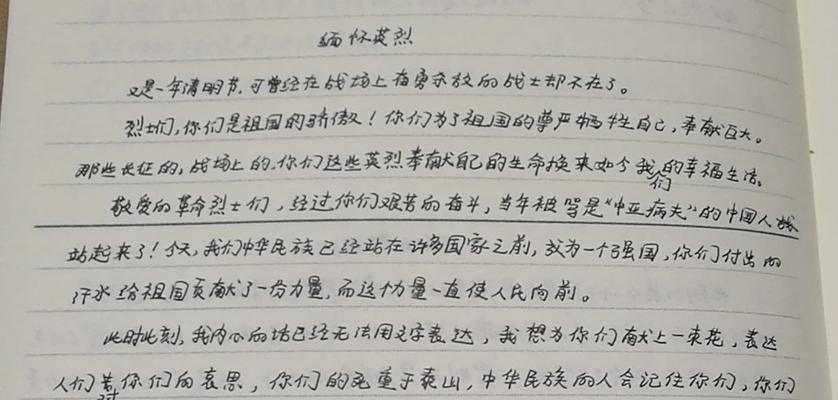 缅怀英烈
又是一年清明节,可曾经在战场上奋勇杀敌的战士却不在了。
烈士们,你们是祖国的骄傲!你们为了祖国的尊严牺牲自己,奉献巨大。
那些长征的,战场上的,你们这些英烈奉献自己的生命换来如今我们的幸福生活。
敬爱的革命烈士们,经过你们艰苦的奋斗,当年被骂是“中亚病夫”的中国人
站起来了!今天,我们中华民族已经站在许多国家之前,成为一个强国,你们付出的
汗水给祖国贡献了一份力量,而这力量一直使人民向前。
此时此刻,我内心的话已经无法用文字表达,我想为你们献上一束花,表达
人们对你们的哀思,你们的死重于泰山,中华民族的人会记住你们,你们